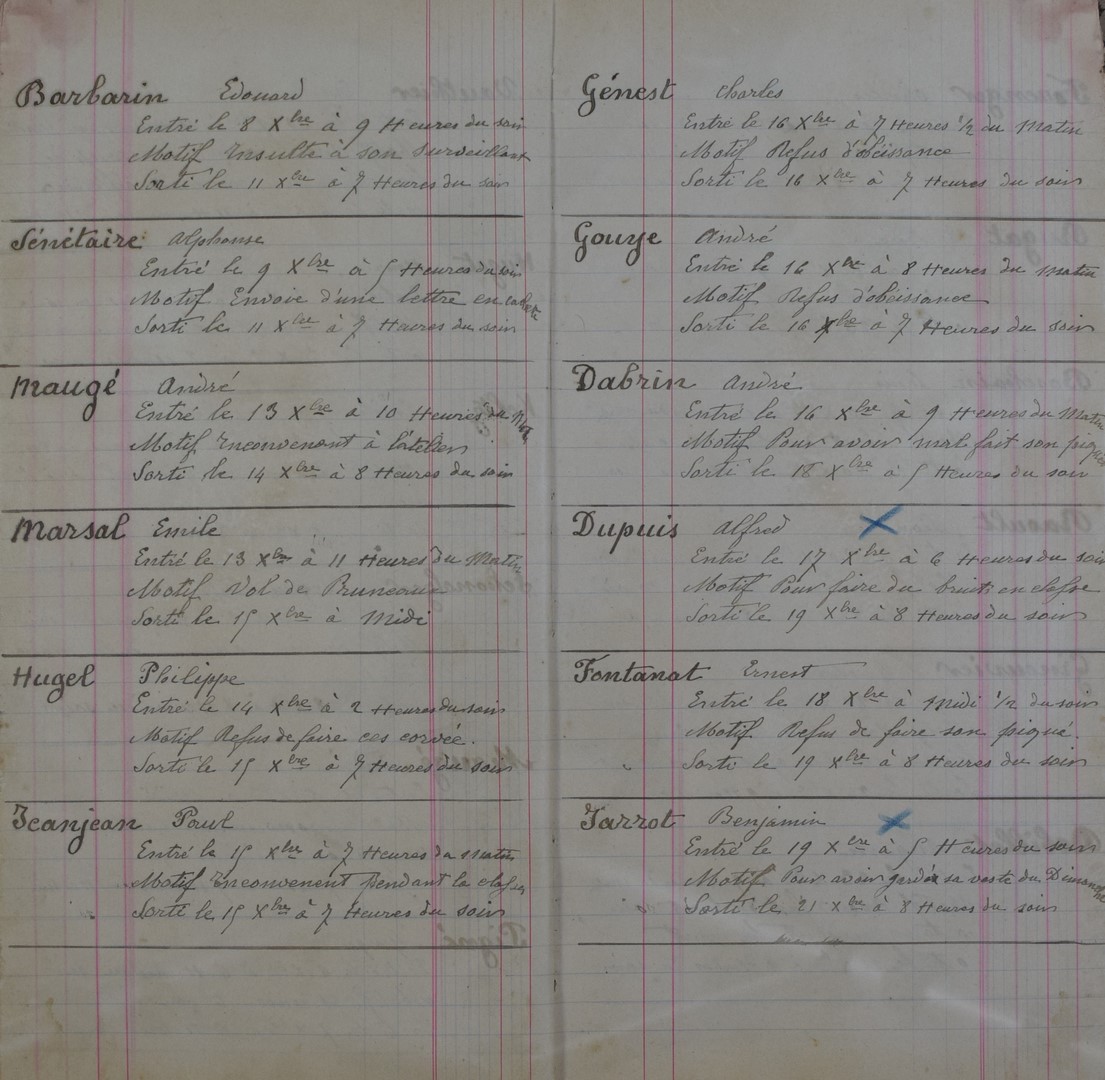 Barbarin Edouard
Entré le 8 Xbre à 9 Heures du soir
Motif Insulte à son surveillant
Sorti le 11 Xbre à 7 Heures du soir
Sénétaire Alphonse
Entré le 9 Xbre à 5 Heures du soir
Motif Envoie d'une lettre en cachete
Sorti le 11 Xbre à 7 Heures du soir
Maugé André
Entré le 13 Xbre à 10 Heures du Mat
Motif Inconvenant à l'atelier
Sorti le 14 Xbre à 8 Heures du soir
Marsal Emile
Entré le 13 Xbre à 11 Heures du Matin
Motif Vol de Pruneaux
Sorti le 15 Xbre à Midi
Hugel Philippe
Entré le 14 Xbre à 2 Heures du soir
Motif Refus de faire ces corvée.
Sorti le 15 Xbre à 7 Heures du soir
Jeanjean Paul
Entré le 15 Xbre à 7 Heures du matin
Motif Inconvenent pendant la classe
Sorti le 15 Xbre à 7 Heures du soir
Génest Charles
Entré le 16 Xbre à 7 Heures 1/2 du Matin
Motif Refus d'obéissance
Sorti le 16 Xbre à 7 Heures du soir
Gouye André
Entré le 16 Xbre à 8 Heures du matin
Motif Refus d'obéissance
Sorti le 16 Xbre à 7 Heures du soir
Dabrin André
Entré le 16 Xbre à 9 Heures du Matin
Motif Pour avoir mal fait son piquée
Sorti le 18 Xbre à 5 Heures du soir
Dupuis Alfred
Entré le 17 Xbre à 6 Heures du soir
Motif Pour faire du bruit en classe
Sorti le 19 Xbre à 8 Heures du soir
Fontanat Ernest
Entré le 18 Xbre à Midi 1/2 du soir
Motif Refus de faire son piqué.
Sorti le 19 Xbre à 8 Heures du soir
Jarrot Benjamin
Entré le 19 Xbre à 5 Heures du soir
Motif Pour avoir garder sa veste du Dimanche
Sorti le 21 Xbre à 8 Heures du soir